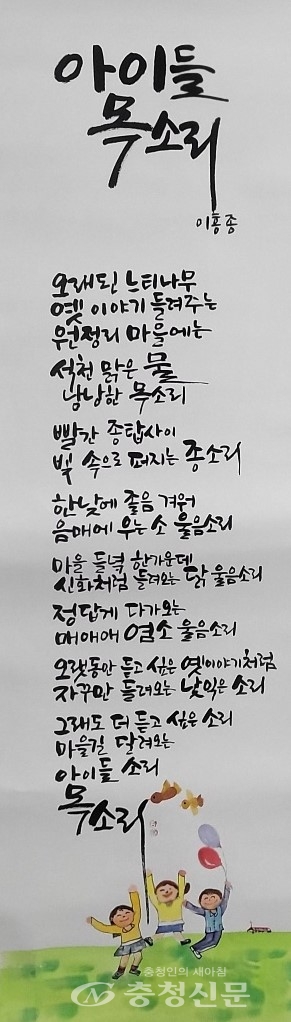 아이들
목소리
이홍종
오래된 느티나무
옛 이야기 들려주는
원정리 마을에는
석천 맑은 물
낭낭한 목소리
빨간 종탑사이
빛 속으로 퍼지는 종소리
한낮에 졸음 겨워
음매에 우는 소 울음소리
마을 들녘 한가운데
신화처럼 들려오는 닭 울음소리
정답게 다가오는
매애애 염소 울음소리
오랫동안 듣고 싶은 옛이야기처럼
자꾸만 들려오는 낯익은 소리
그래도 더 듣고 싶은 소리
마을길 달려오는
아이들 소리
목소리
충청인의 새아침
충청신문